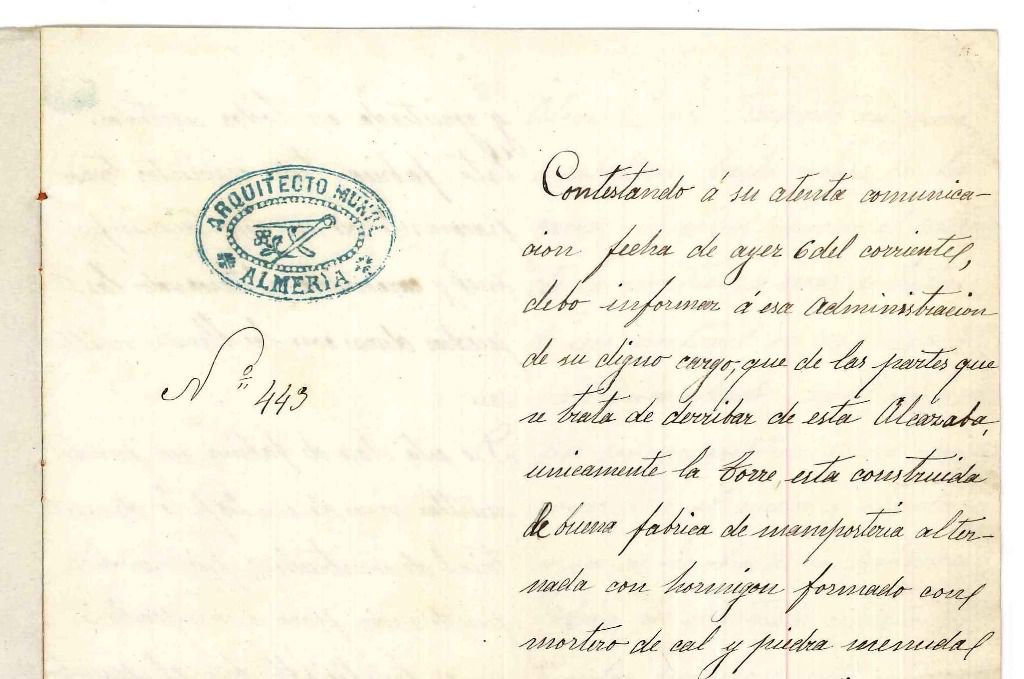 ARQUITECTO MUNPL
ALMERÍA
Nº 443
Contestando á su atenta comunica-
cion fecha de ayer 6 del corriente,
debo informar á esa Administracion
de su digno cargo, que de las partes que
se trata de derribar de esta Alcazaba,
unicamente la Torre, esta construida
de buena fabrica de mamposteria alter-
nada con hormigon formado con
mortero de cal y piedra menuda